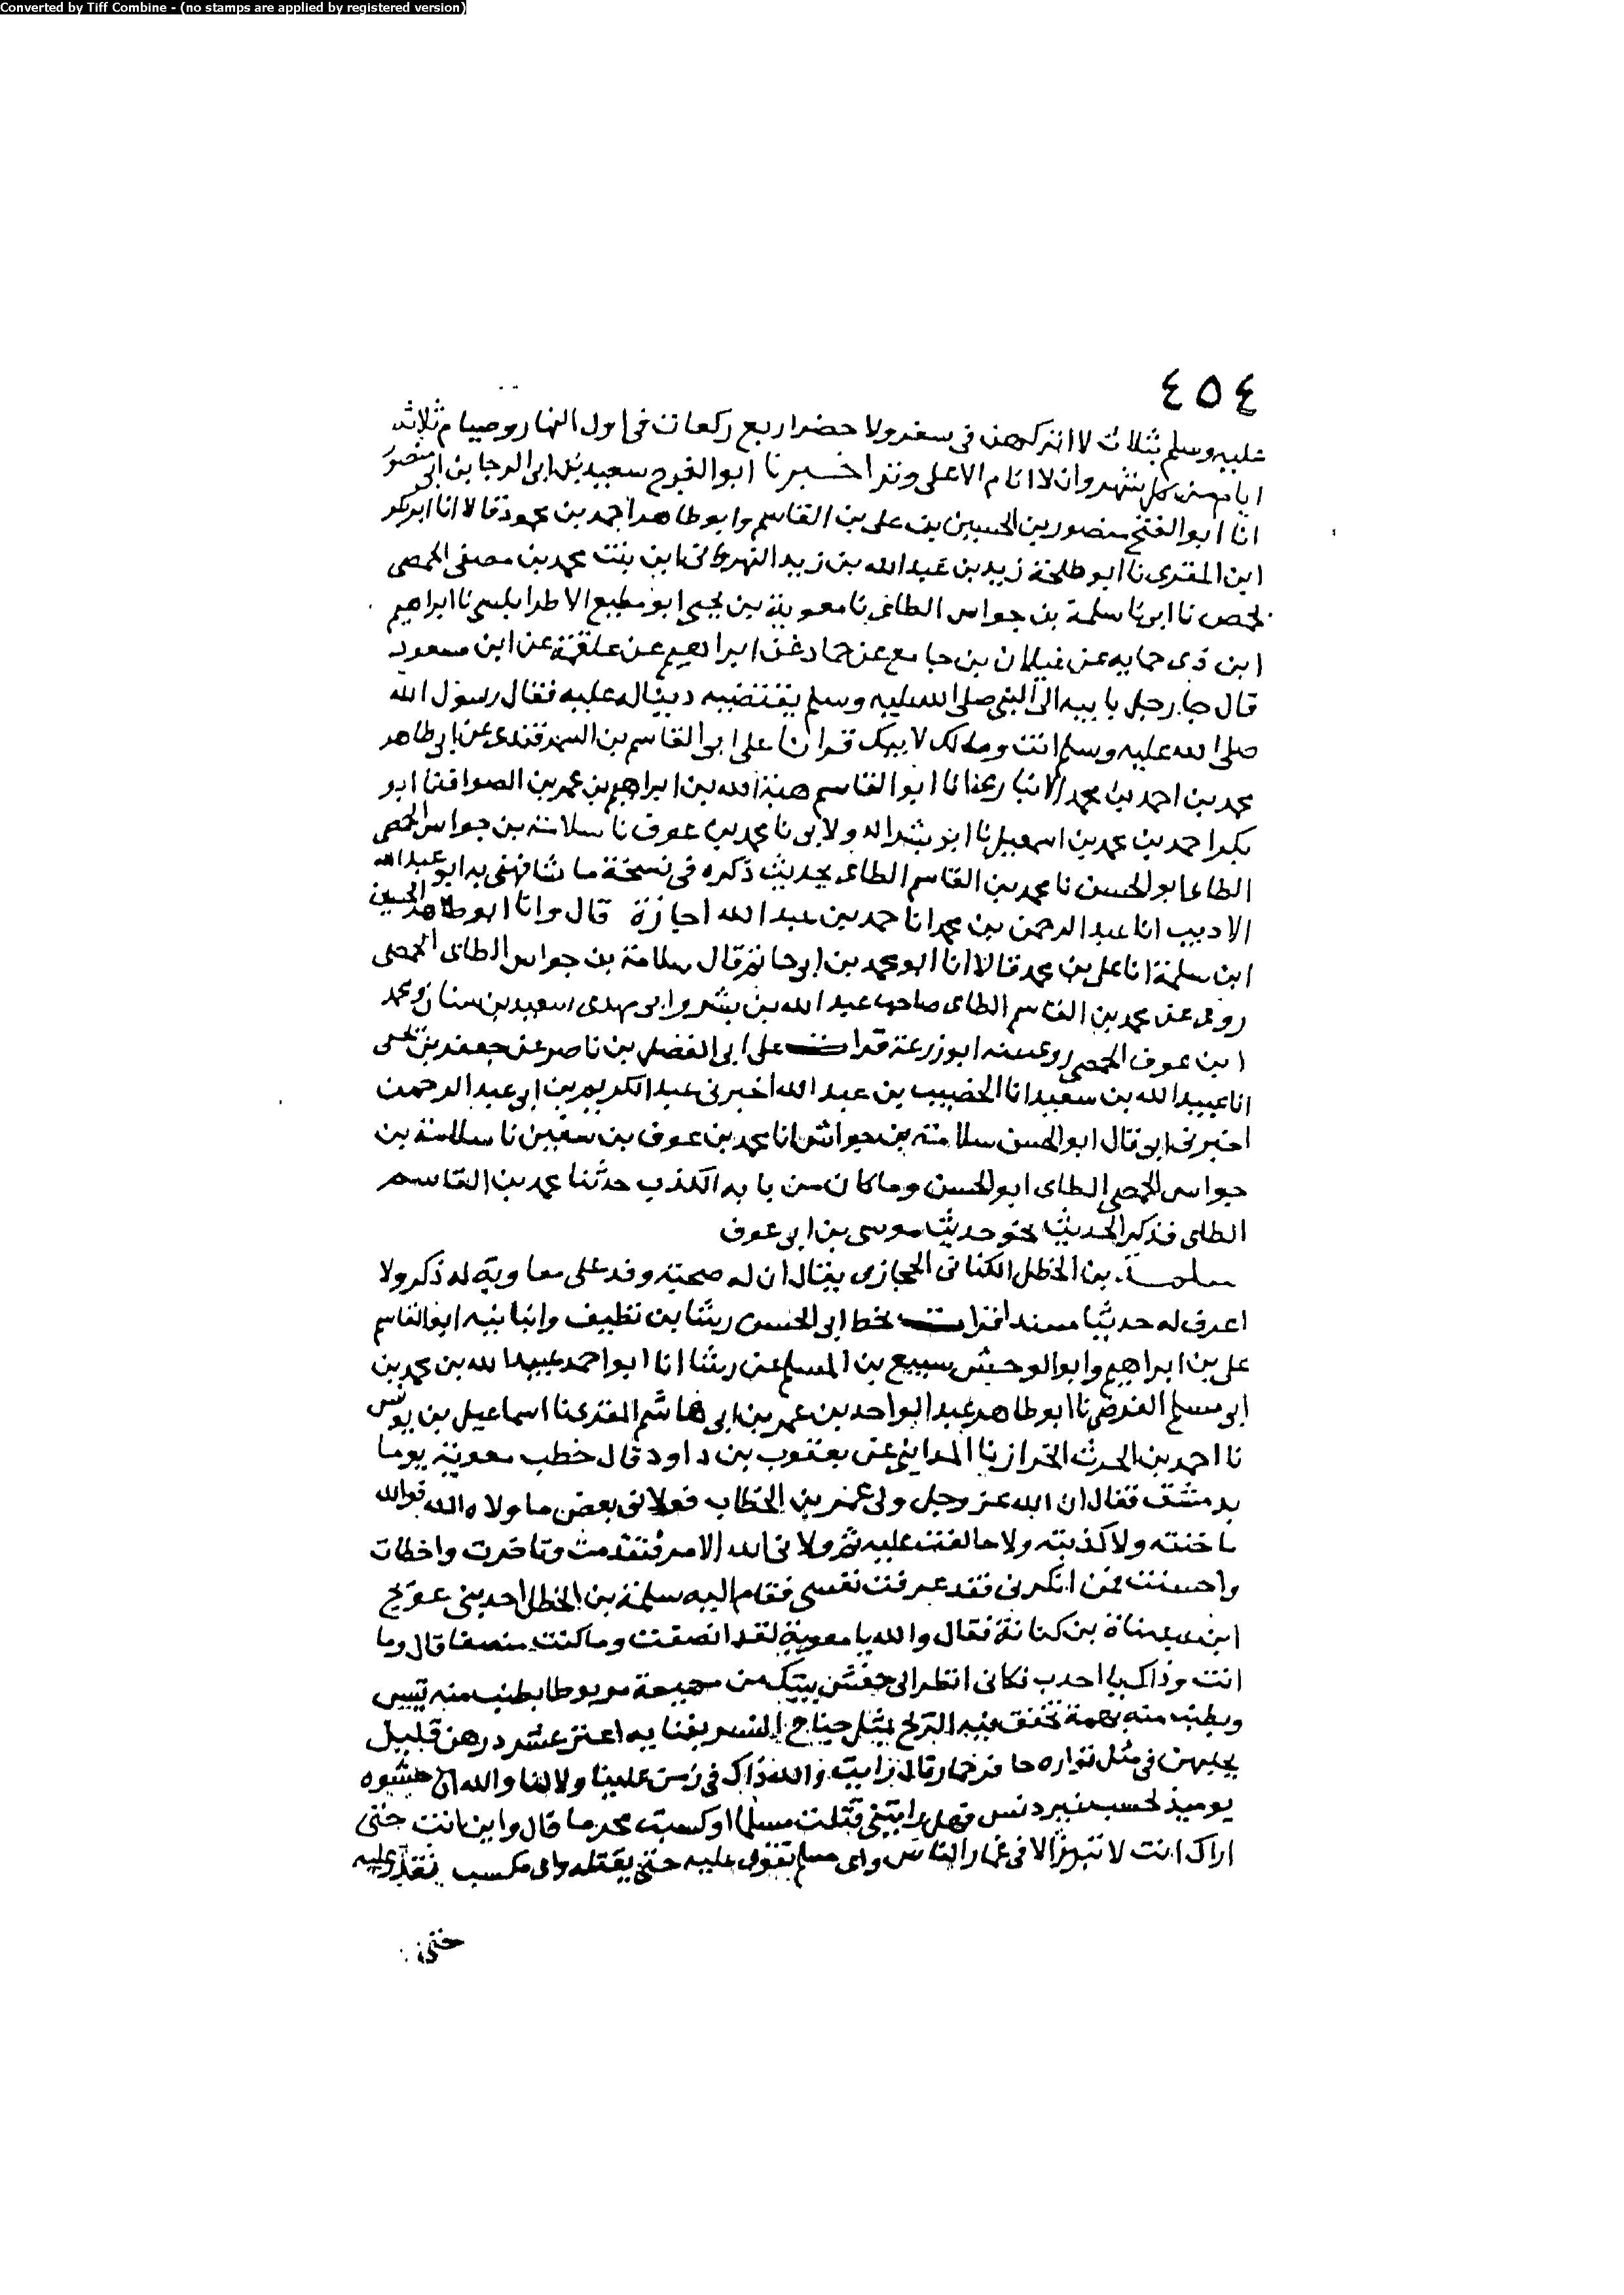 Converted by Tiff Combine - (no stamps are applied by registered version)
٤٥٤
عليه وسلم بثلاث لا اتركهن فى سفر ولا حضر اربع ركعات فى اول النهار وصيام ثلاثه
ايام من كل شهر وان لا انام الا على وتر اخبرنا ابو الفرج سعيد بن ابى الرجا بن ابى منصور
انا ابو الفتح منصور بن الحسين بن على بن القاسم وابو طاهر احمد بن محمود قالا انا ابو بكر
ابن المقرى نا ابو طلحة زيد بن عبد الله بن زيد ابن بنت محمد بن مصفى الحمصى
بحمص نا ابى نا سلمة بن جواس الطائى نا معوية بن يحيى ابو مطيع الاطرابلسى نا ابراهيم
ابن ذى حمايه عن غيلان بن جامع عن حماد عن ابراهيم عن علقمة عن ابن مسعود
قال جا رجل بابيه الى النبى صلى الله عليه وسلم يقتضيه دينا له عليه فقال رسول الله
صلى الله عليه وسلم انت ومالك لابيك قرانا على ابى القاسم بن السمرقندى عن ابى طاهر
محمد بن احمد بن محمد الانبارى انا ابو القاسم هبة الله بن ابراهيم بن عمر بن الصواف نا ابو
بكر احمد بن محمد بن اسمعيل نا ابو بشر الدولابى نا محمد بن عوف نا سلامة بن جواس الحمصى
الطائى ابو الحسن نا محمد بن القاسم الطائى بحديث ذكره فى نسخة ما شافهنى به ابو عبد الله
الاديب انا عبد الرحمن بن محمد انا حمد بن عبد الله اجازة قال وانا ابو طاهر الحسين
ابن سلمة انا على بن محمد قالا انا ابو محمد بن ابى حاتم قال سلامة بن جواس الطائى الحمصى
روى عن محمد بن القاسم الطائى صاحب عبد الله بن بشر وابى مهدى سعيد بن سنان ومحمد
ابن عوف الحمصى روى عنه ابو زرعة قرات على ابى الفضل بن ناصر عن جعفر بن يحيى
انا عبيد الله بن سعيد انا الخصيب بن عبد الله اخبرنى عبد الكريم بن ابى عبد الرحمن
اخبرنى ابى قال ابو الحسن سلامة بن جواش انا محمد بن عوف بن سفين نا سلامة بن
جواس الحمصى الطائى ابو الحسن وما كان من بابه الكذب حدثنا محمد بن القاسم
الطائى فذكر الحديث نحو حديث موسى بن ابى عوف
سلمة بن الخطل الكنانى الحجازى يقال ان له صحبة وفد على معاوية له ذكر ولا
اعرف له حديثا مسندا قرات بخط ابى الحسن رشا بن نظيف وانبانيه ابو القاسم
على بن ابراهيم وابو الوحش سبيع بن المسلم عن رشا انا ابو احمد عبيد الله بن محمد بن
ابى مسلم الفرضى نا ابو طاهر عبد الواحد بن عمر بن ابى هاشم المقرى نا اسماعيل بن يونس
نا احمد بن الحرث الخراز نا المداينى عن يعقوب بن داود قال خطب معوية يوما
بدمشق فقال ان الله عز وجل ولى عمر بن الخطاب فولانى بعض ما ولاه الله فوالله
ما خنته ولا كذبته ولا خالفت عليه ثم ولانى الله الامر فتقدمت وتاخرت واخطات
واحسنت فمن انكرنى فقد عرفت نفسى فقام اليه سلمة بن الخطل احد بنى عويج
ابن عبد مناة بن كنانة فقال والله يا معوية لقد انصفت وما كنت منصفا قال وما
انت وذاك يا احدب فكانى انظر الى حفش بيتك من مهيعة مربوطا بطنب منه تيس
وبطنب منه بهمة تخفق فيه الريح مثل جناح النسر بفنايه اعنز عشر درهن قليل
يحلبهن فى مثل قواره حافر حمار قال رايت والله ذاك فى زمن علينا ولا لنا والله ان حشوه
يوميذ لحسب غير دنس فهل رايتنى قتلت مسلما او كسبت محرما قال واين انت حتى
اراك انت لا تبرز الا فى غمار الناس واى مسلم تقوى عليه حتى يقتله واى مكسب تقدر عليه
حتى